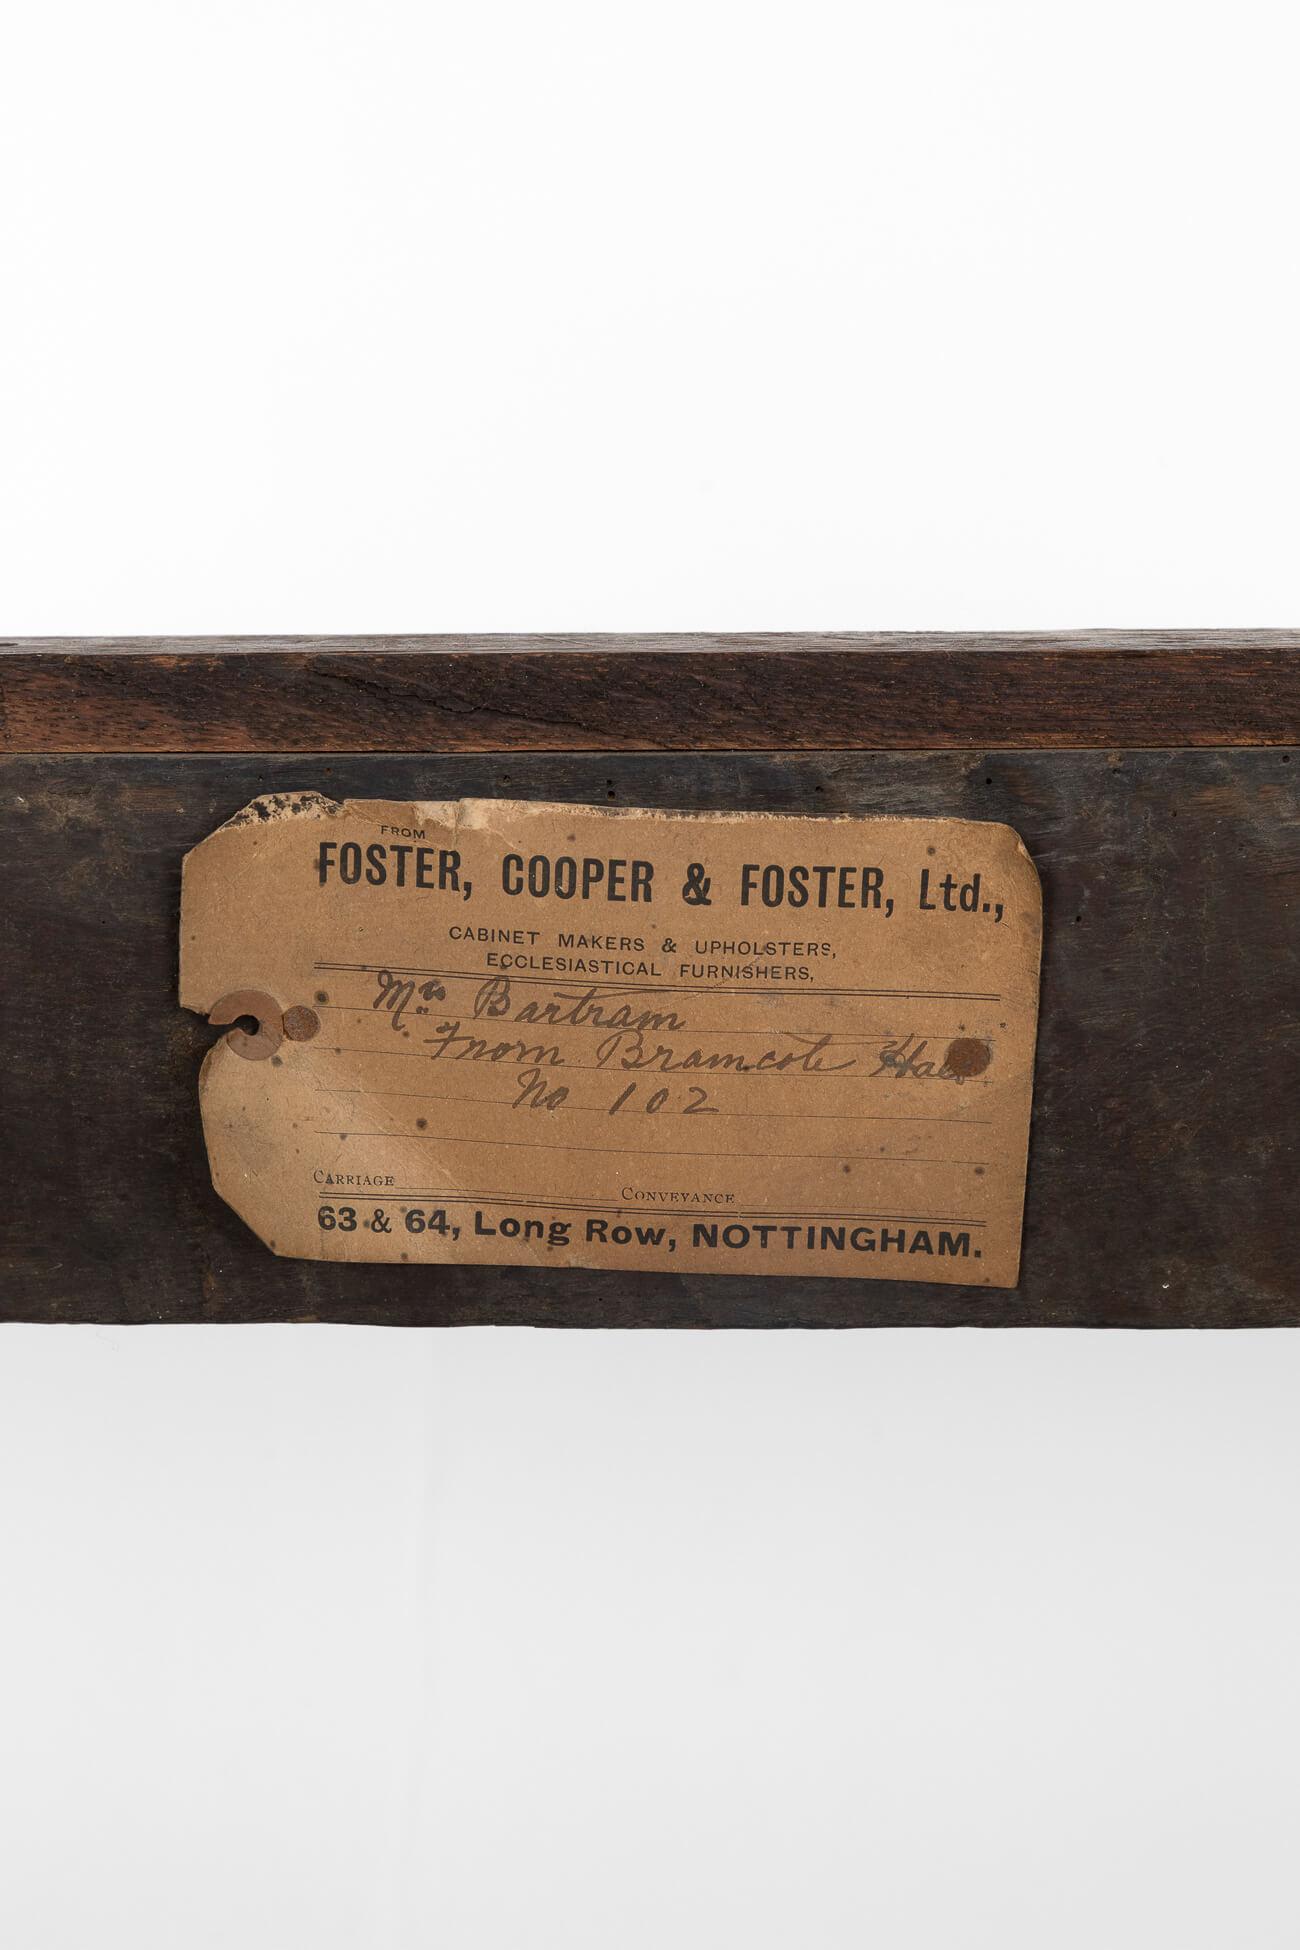 FROM
FOSTER, COOPER & FOSTER, Ltd.,
CABINET MAKERS & UPHOLSTERS,
ECCLESIASTICAL FURNISHERS,
Mrs Bartram
From Bramcote Hall
No 102
CARRIAGE CONVEYANCE
63 & 64, Long Row, NOTTINGHAM.